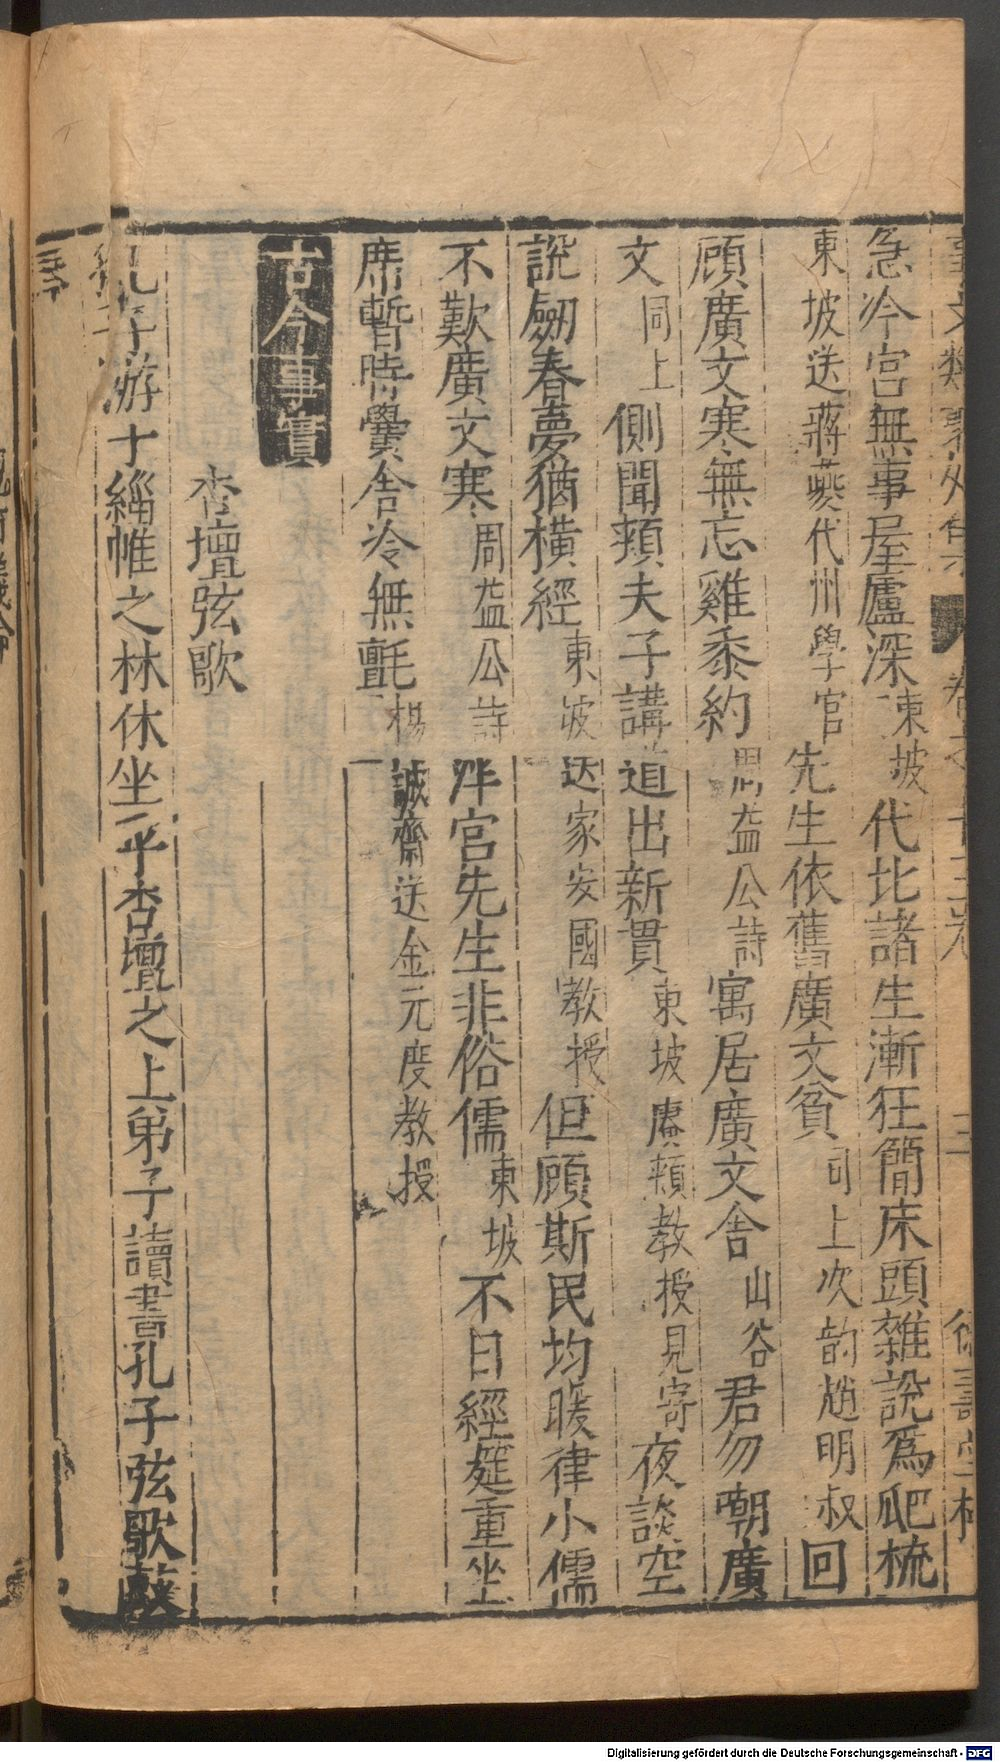 急冷官無事屋廬深東坡代北諸生漸狂簡床頭雜說爲爬梳
東坡送蔣夔代州學官先生依舊廣文貧同上次韵趙明叔回
顧廣文寒無忘雞黍約周益公詩寓居廣文舍山谷君勿嘲廣
文同上側聞頖夫子講道出新貫東坡賡頖教授見寄夜談空
說劒春夢猶橫經東坡送家安國教授但顧斯民均暖律小儒
不歎廣文寒周益公詩泮宮先生非俗儒東坡不日經筵重坐
席暫時黌舍冷無氈楊誠齋送金元度教授
古今事實
杏壇弦歌
孔子游于緇帷之林休坐乎杏壇之上弟子讀書孔子弦歌鼓
Digitalisierung gefördert durch die Deutsche Forschungsgemeinschaft - DFG